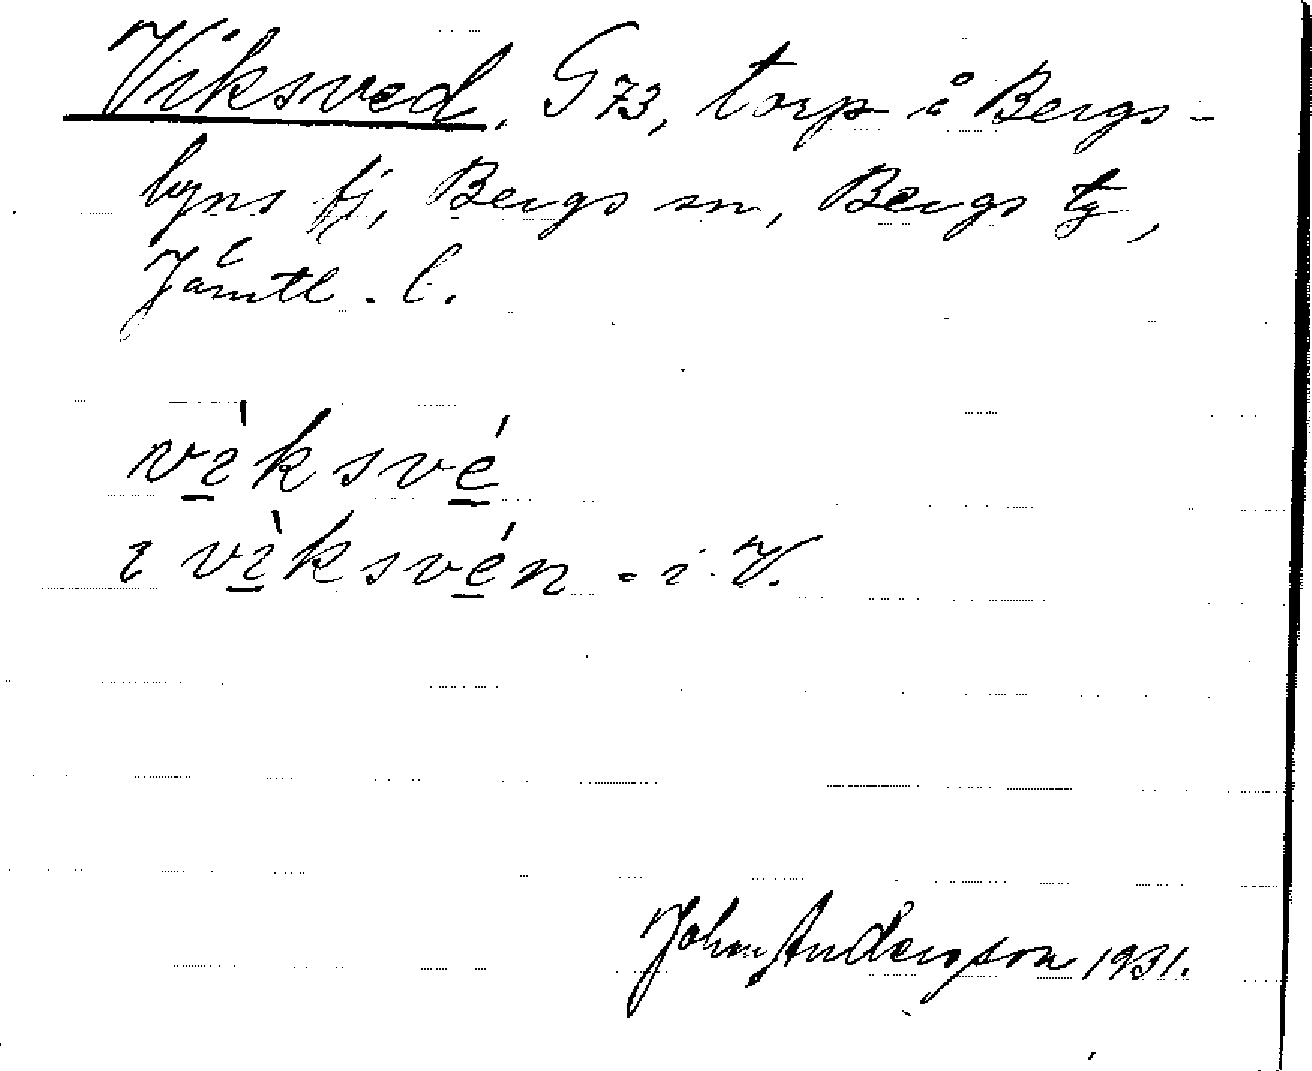 Viksved, G 73, torp å Bergs-
byns fj, Bergs sn, Bergs tg,
Jämtl. l.
vìksvé
ı vìksvén - i V.
John Andersson 1931.